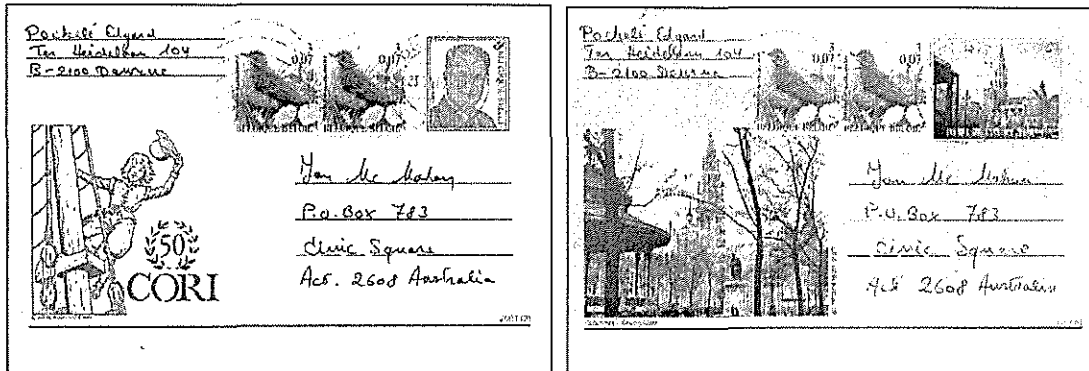 Pochelé Edgard
Ter Heidelaan 104
B-2100 Deurne
3
0,07
3
0,07
BELGIQUE BELGIË
BELGIQUE BELGIË
50
CORI
Jan Mc Mahon
P.O. Box 783
Civic Square
Act. 2608 Australia
Pochelé Edgard
Ter Heidelaan 104
B-2100 Deurne
3
0,07
3
0,07
BELGIQUE BELGIË
BELGIQUE BELGIË
Jan Mc Mahon
P.O. Box 783
Civic Square
Act 2608 Australia